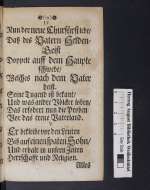 IV.
Nun der neue Churfürst lebe/
Daß des Vatern Helden-
Geist
Doppelt auff dem Haupte
schwebe/
Welches nach dem Vater
heist.
Seine Tugend ist bekant/
Und was andre Völcker loben/
Das erfodern nun die Proben
Vor das treue Vaterland.
Er bekleibe vor den Leuten
Biß auf seinen späten Sohn/
Und erhalt in unsern Zeiten
Herrschafft und Religion.
Alles
Herzog August Bibliothek Wolfenbüttel